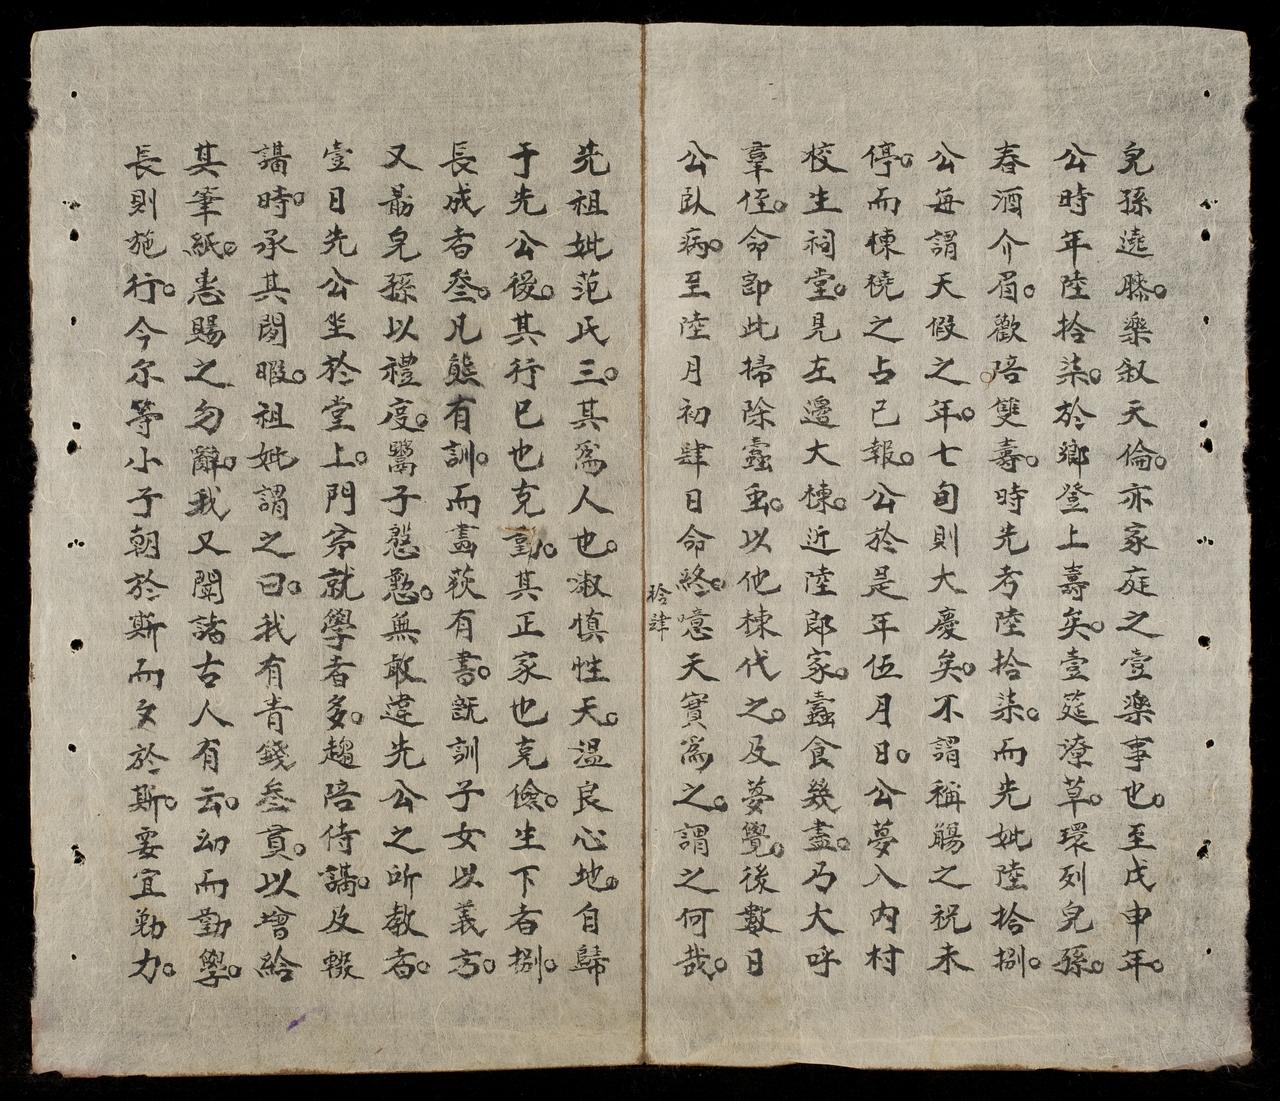 皃孫遶膝。樂叙天倫。亦家庭之壹樂事也。至戊申年。
公時年陸拾柒。於鄉登上壽矣。壹筵潦草。環列皃孫。
春酒介眉。歡陪雙壽。時先考陸拾柒。而先妣陸拾捌。
公每謂天假之年。七旬則大慶矣。不謂稱觴之祝未
停。而棟橈之占已報。公於是年伍月日。公夢入内村
校生祠堂。見左邊大棟。近陸郎家。蠹食幾盡。乃大呼
羣侄。命即此掃除蠹虫。以他棟代之。及夢覺。後數日
公臥病。至陸月初肆日命終。噫天實爲之。謂之何哉。
拾肆
先祖妣范氏三。其爲人也。淑慎性天。温良心地。自歸
于先公後。其行已也克勤。其正家也克儉。生下者捌。
長成者叁。凡熊有訓。而畫荻有書。既訓子女以義方。
又勗皃孫以禮度。鬻子慇懃。無敢違先公之所教者。
壹日先公坐於堂上。門弟就學者多。趨陪侍講。及輟
講時。承其閒暇。祖妣謂之曰。我有青錢叁貫。以增給
其筆紙。悉賜之勿辭。我又聞諸古人有云。幼而勤學。
長則施行。今尔等小子朝於斯而夕於斯。要宜勤力。